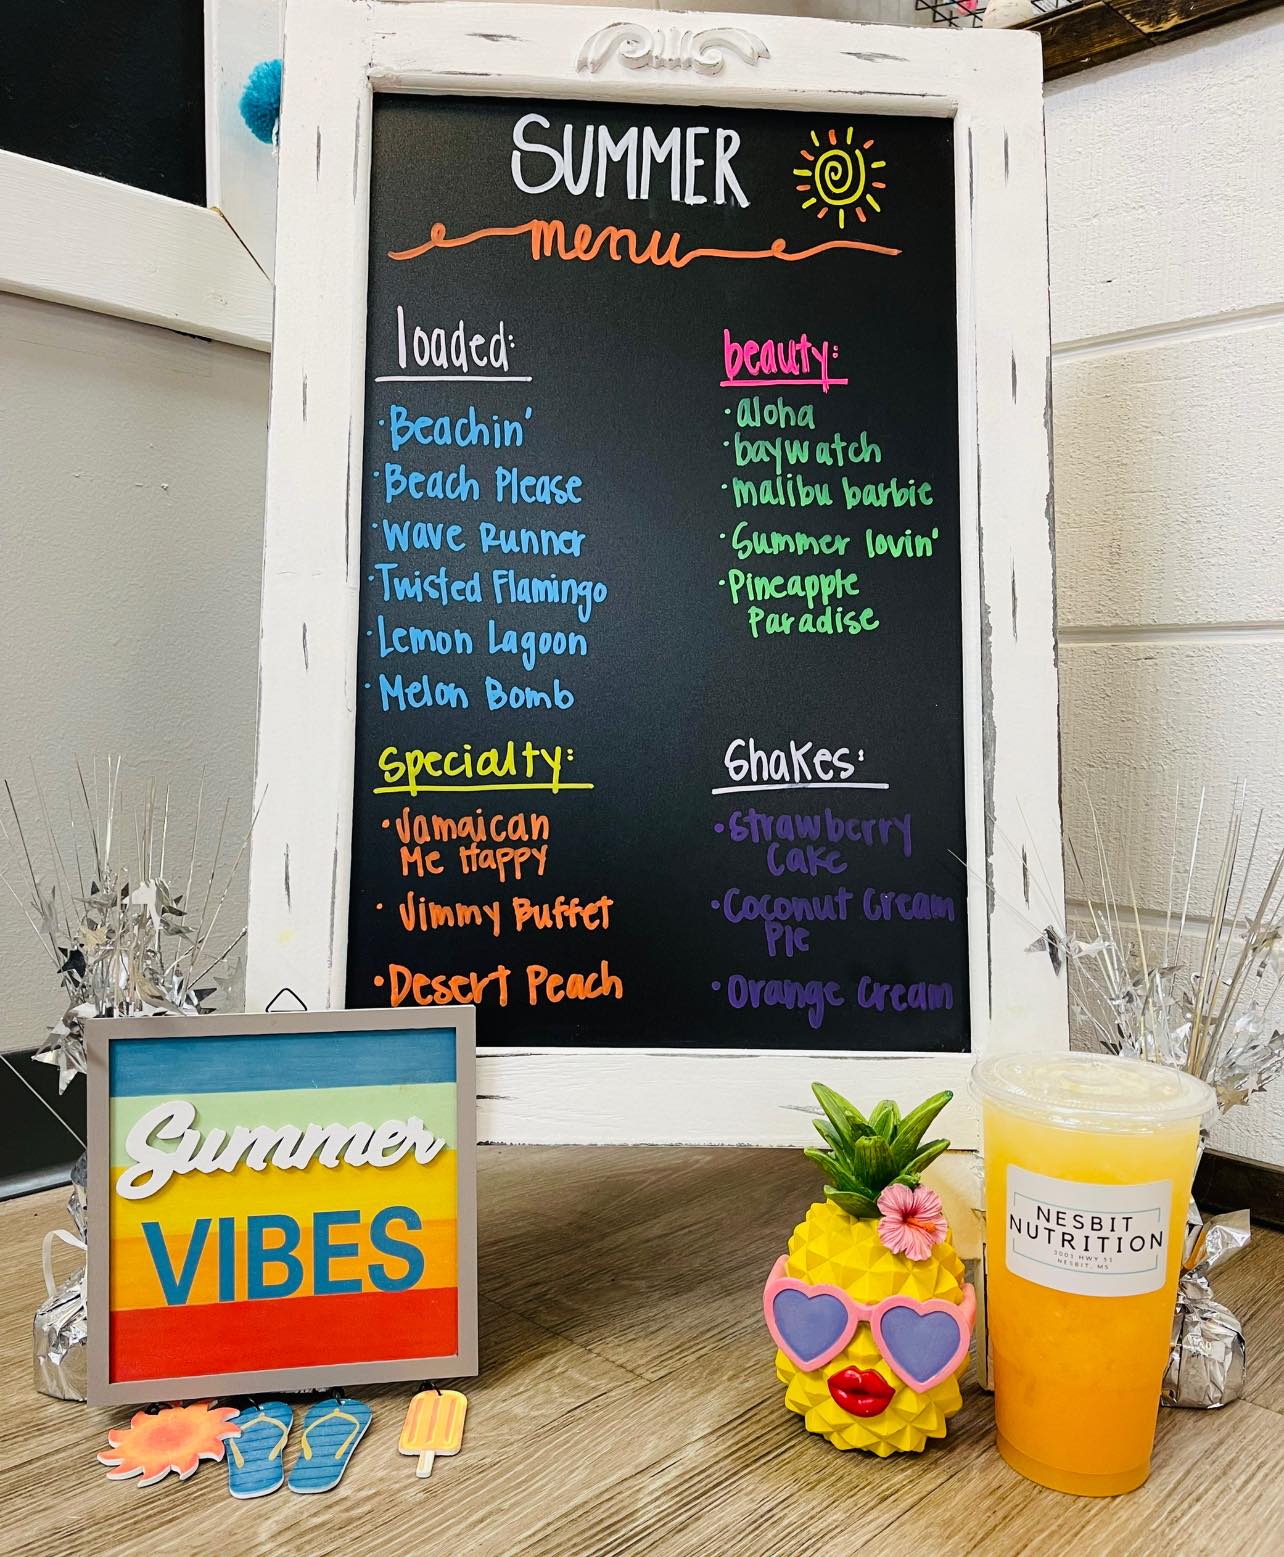 SUMMER
menu
loaded:
· Beachin'
· Beach Please
· Wave Runner
· Twisted Flamingo
· Lemon Lagoon
· Melon Bomb
beauty:
· aloha
· baywatch
· malibu barbie
· Summer lovin'
· Pineapple
Paradise
Specialty:
· Jamaican
Me Happy
· Jimmy Buffet
· Desert Peach
Shakes:
· Strawberry
Cake
· Coconut Cream
Pie
· Orange Cream
Summer
VIBES
NESBIT
NUTRITION
3001 HWY 51
NESBIT, MS